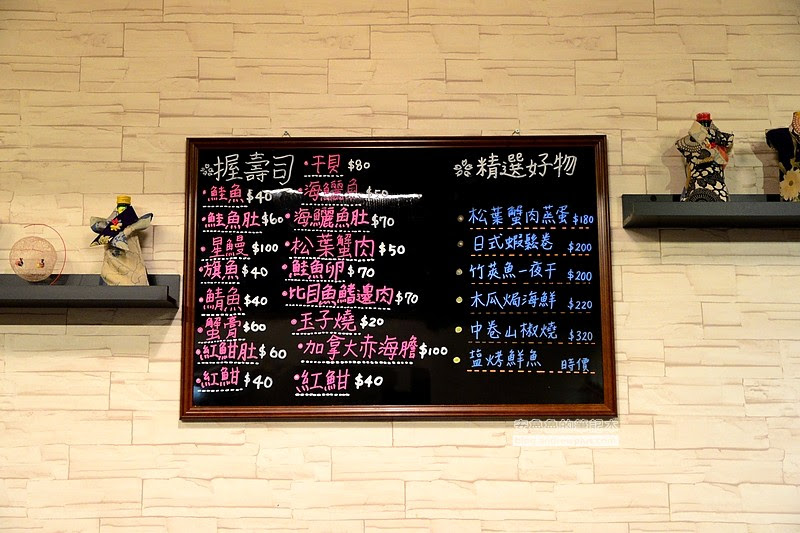 握壽司
鮭魚 $40
鮭魚肚 $60
星鰻 $100
旗魚 $40
鯖魚 $40
蟹膏 $60
紅魽肚 $60
紅魽 $40
干貝 $80
海鱺魚 $50
海鱺魚肚 $70
松葉蟹肉 $50
鮭魚卵 $70
比目魚鰭邊肉 $70
玉子燒 $20
加拿大赤海膽 $100
紅魽 $40
精選好物
松葉蟹肉蒸蛋 $180
日式蝦鬆卷 $200
竹莢魚一夜干 $200
木瓜焗海鮮 $220
中卷山椒燒 $320
鹽烤鮮魚 時價